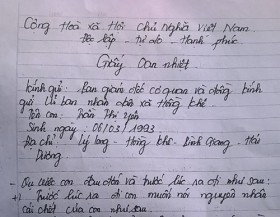 Cộng Hoà xã Hội Chủ Nghĩa Việt Nam.
Độc lập - tự do - Hạnh phúc.
Giấy Oan nhiệt.
kính gửi - Ban giám đốc cơ quan và đồng kính
gửi Uỷ ban nhân dân xã Hồng khê
Tên con: Trần Phi yến
Sinh ngày: 06/03/1993
Địa chỉ: lý long - Hồng khê - Bình Giang - Hải
Dương
- Ước con đau đớn và trước lúc ra đi như sau:
+ Trước lúc ra đi con muốn nói nguyên nhân
cái chết của con như sau.